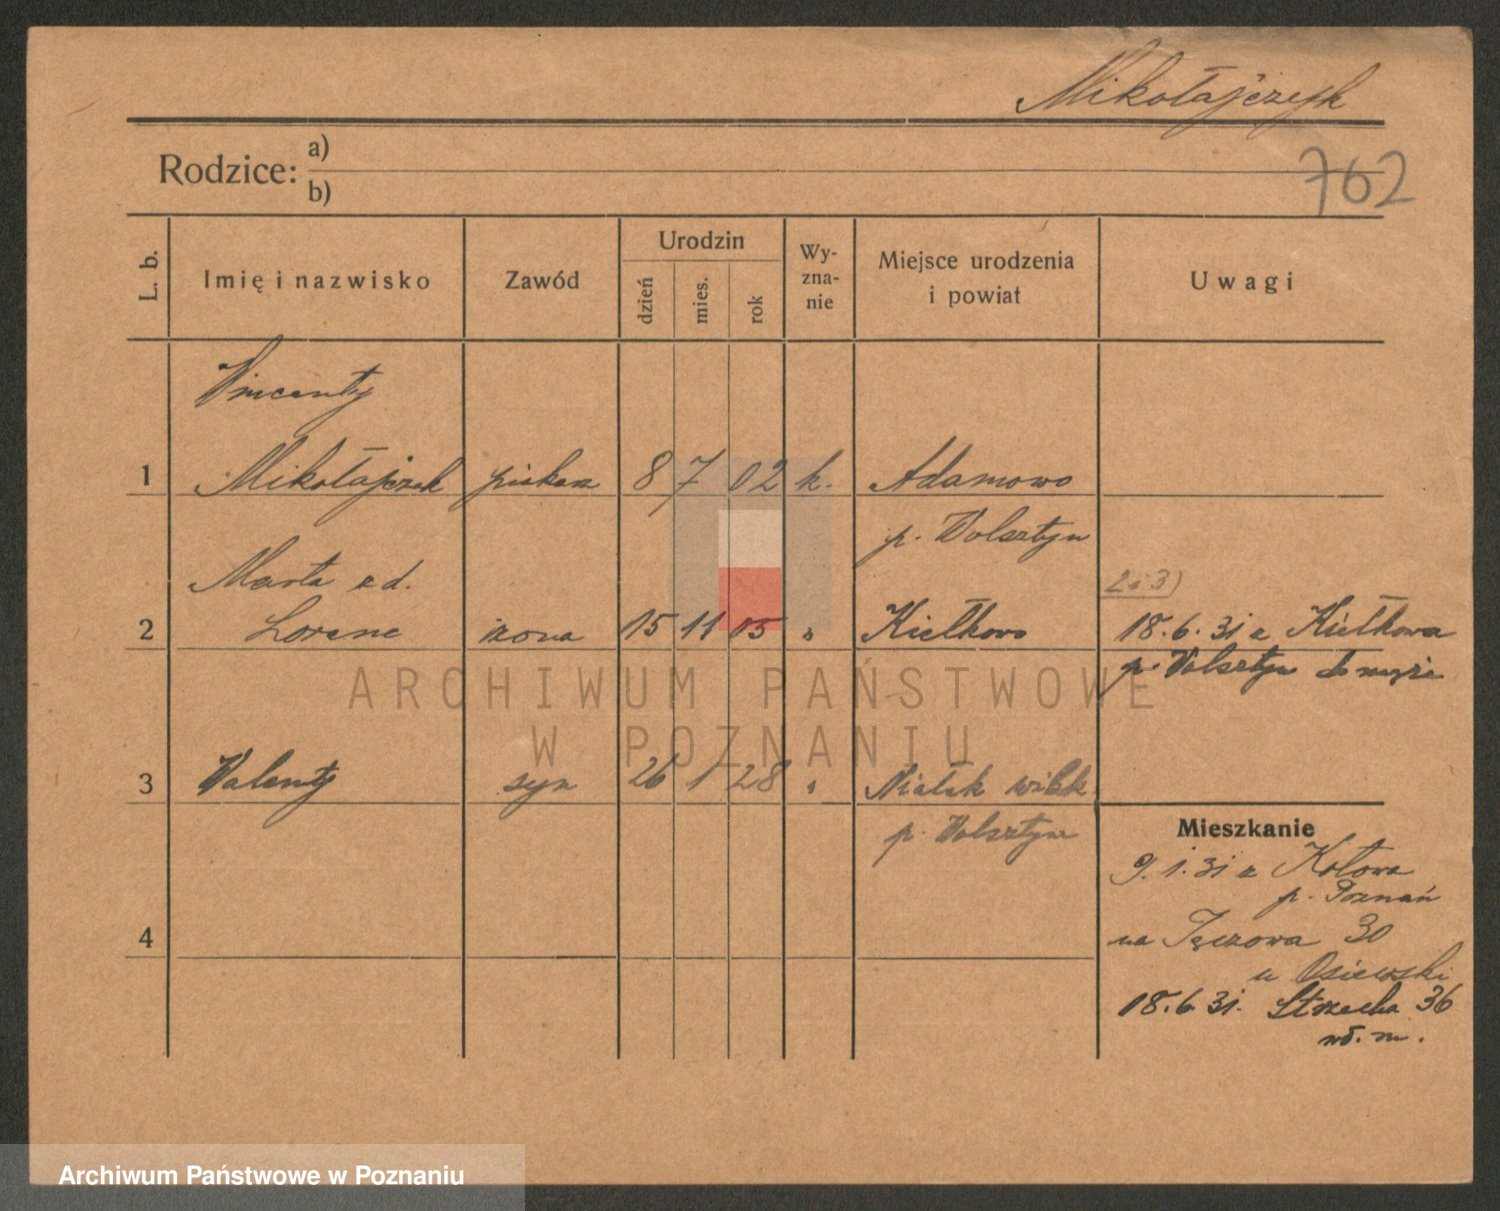 Mikołajczyk
762
Rodzice: a)
b)
L. b.
Imię i nazwisko
Zawód
Urodzin
dzień
mies.
rok
Wy-
zna-
nie
Miejsce urodzenia
i powiat
Uwagi
Wincenty
1 Mikołajczak piekarz 8 7 02 k. Adamowo
p. Wolsztyn
Marta z d.
2 i 3)
2 Lorenc żona 15 11 05 " Kiełkowo 18.6.31 z Kiełkowa
p. Wolsztyn do męża
ARCHIWUM PAŃSTWOWE
W POZNANIU
3 Walenty syn 26 1 28 "
p. Wolsztyn
Mieszkanie
9.1.31 z Kotowa
p. Poznań
4
na Tęczowa 30
u Osiewski
18.6.31. Strzecha 36
wł. m.
Archiwum Państwowe w Poznaniu